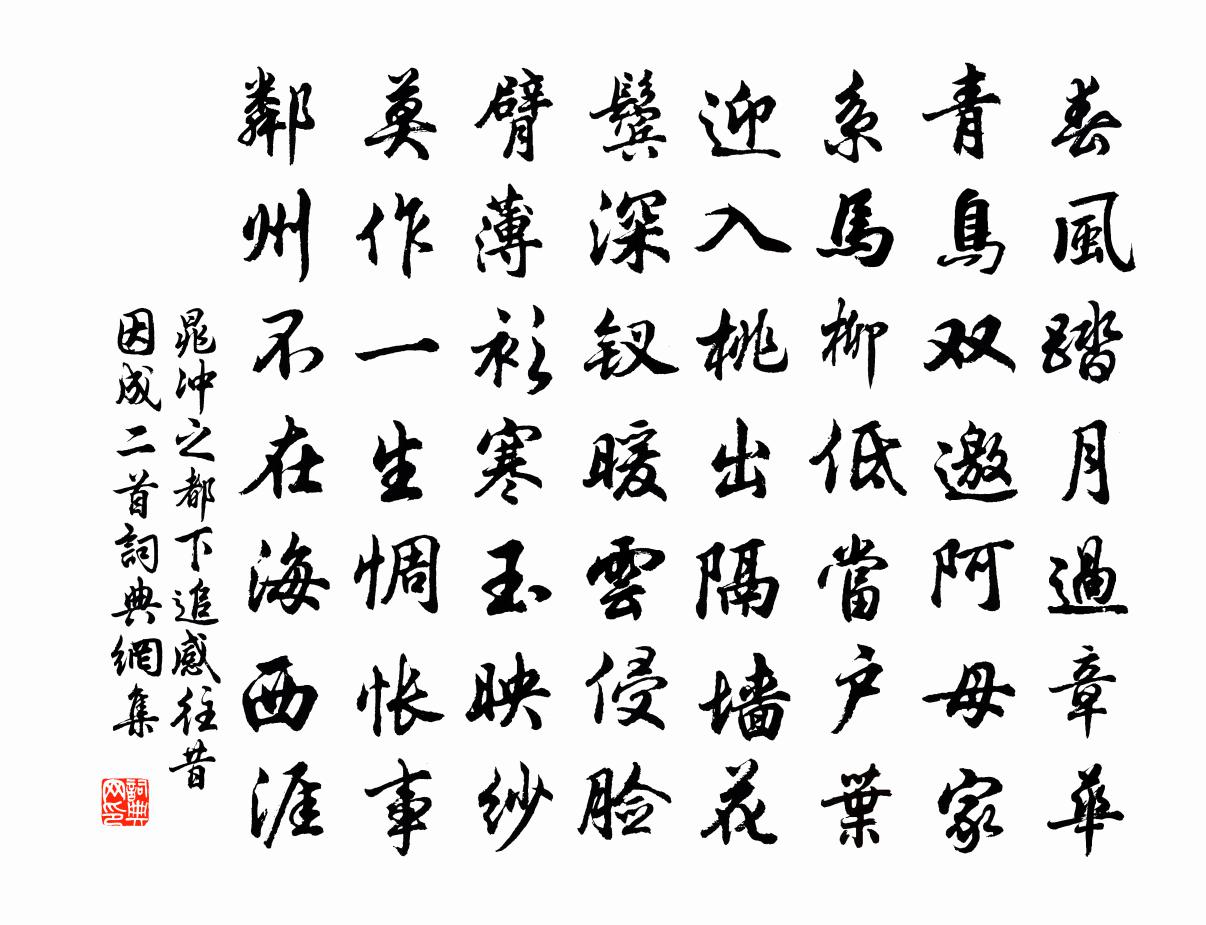 春風踏月過章華
青鳥双邀阿母家
系馬柳低當户葉
迎入桃出隔墙花
鬓深钗暖雲侵脸
臂薄衫寒玉映纱
莫作一生惆怅事
鄰州不在海西涯
晁冲之都下追感往昔
因成二首詞典網集
詞典
网印